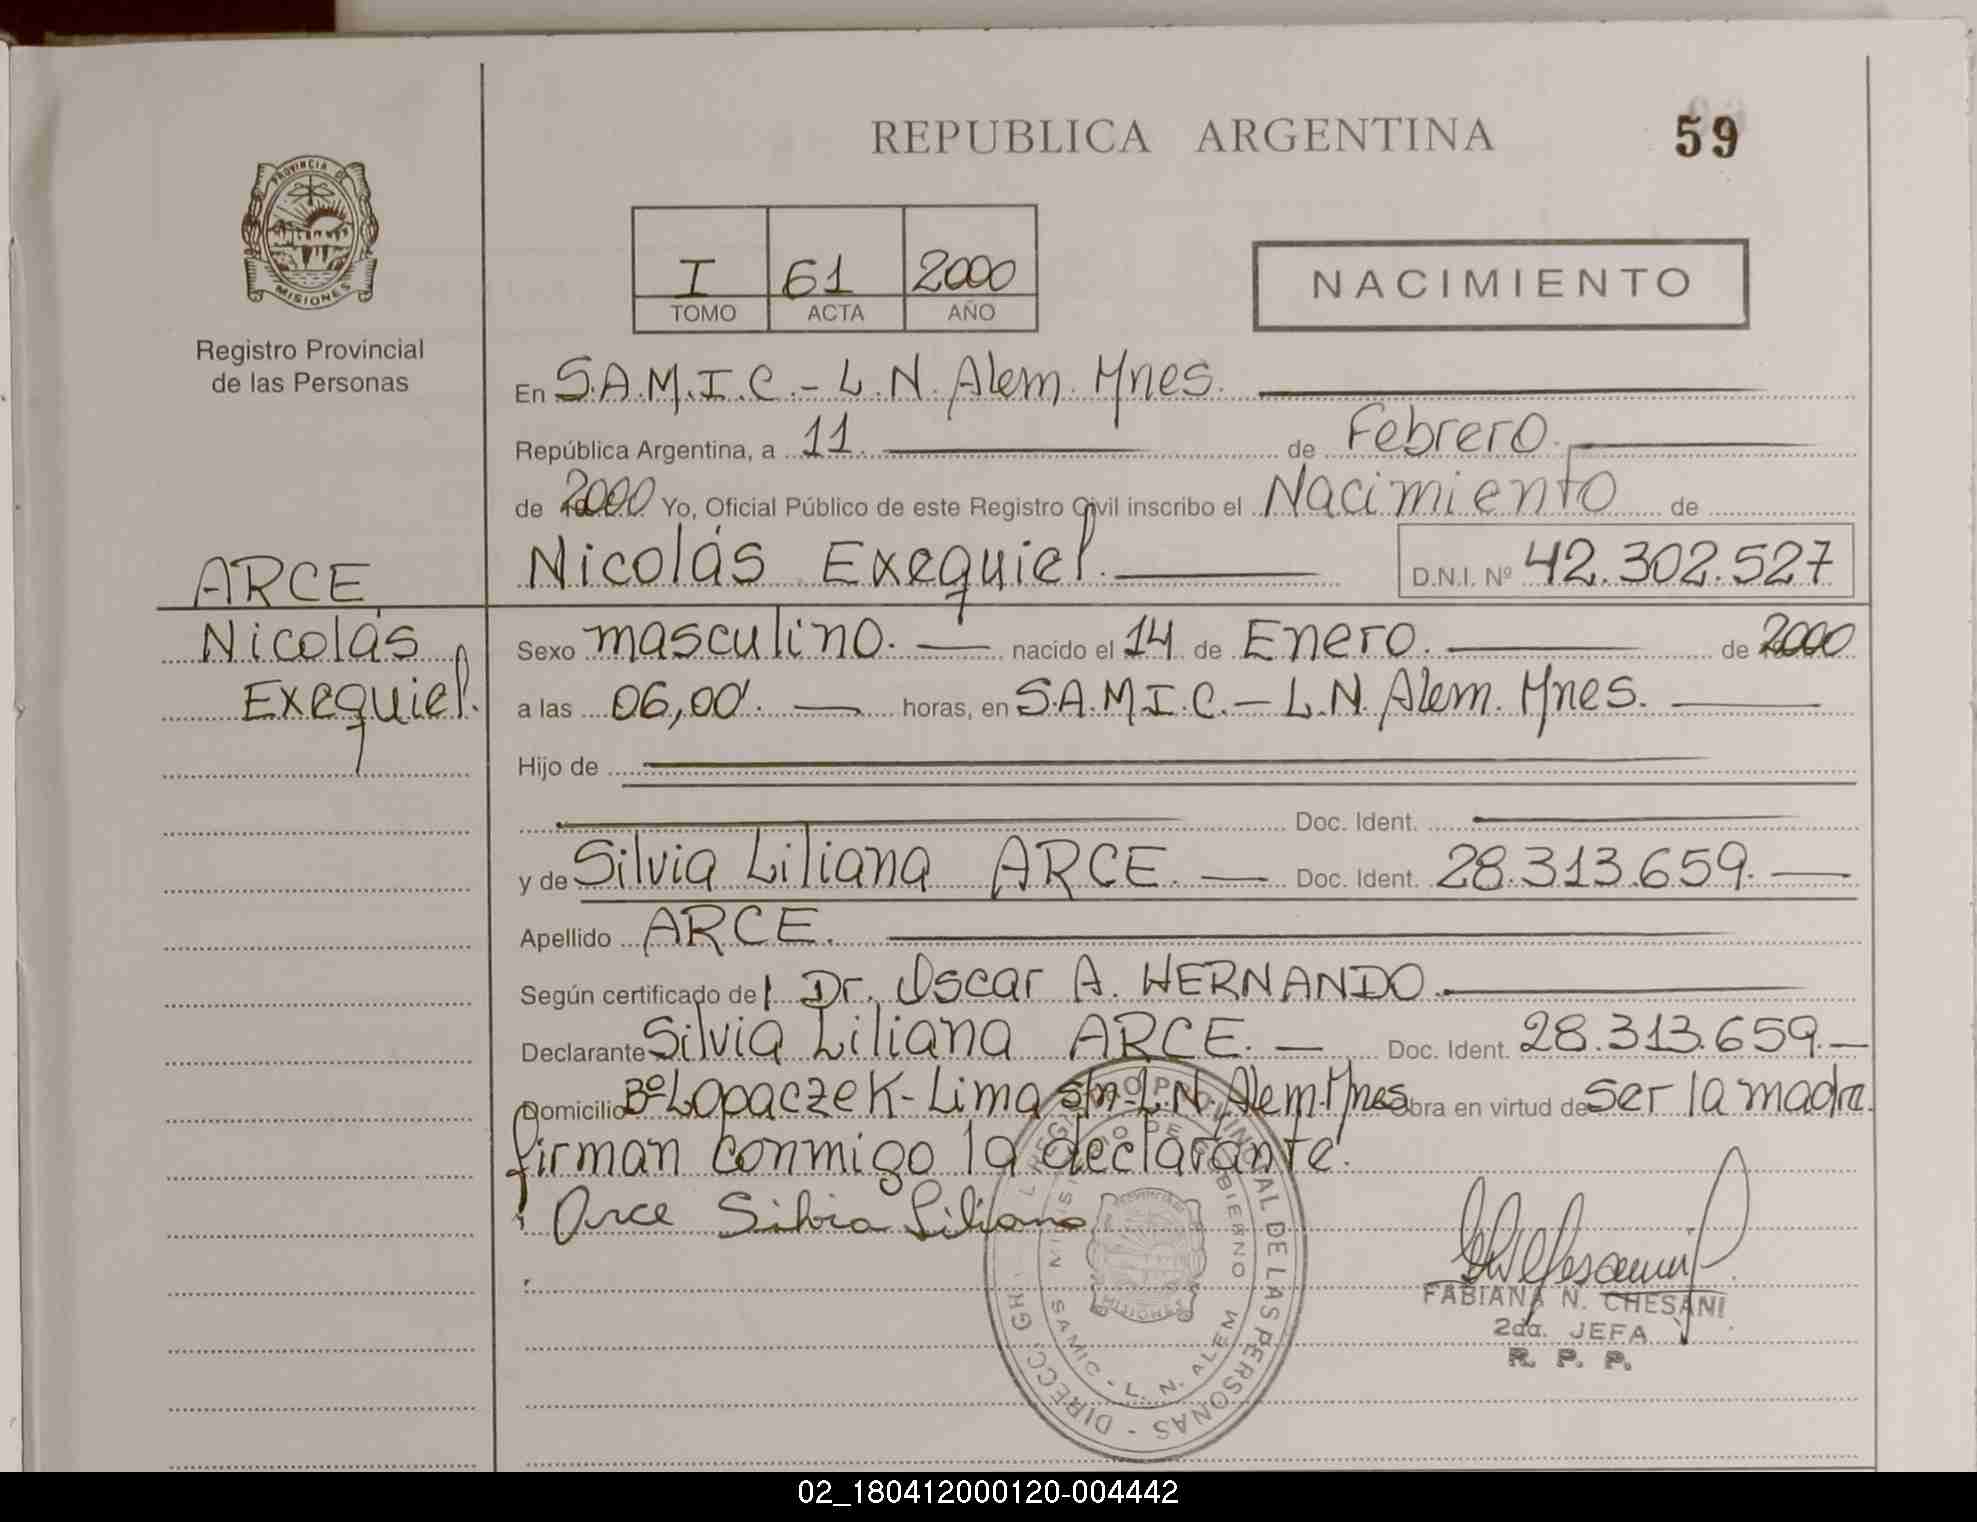 REPUBLICA ARGENTINA
59
PROVINCIA DE
MISIONES
Registro Provincial
de las Personas
I 61 2000
TOMO ACTA AÑO
NACIMIENTO
En S.A.M.I.C.- L.N. Alem. Mnes.
República Argentina, a 11. de Febrero.
de 2000 Yo, Oficial Público de este Registro Civil inscribo el Nacimiento de
Nicolás Exequiel. D.N.I. Nº 42.302.527
ARCE
Nicolás
Exequiel.
Sexo masculino. nacido el 14 de Enero. de 2000
a las 06,00'. horas, en S.A.M.I.C.- L.N. Alem. Mnes.
Hijo de
Doc. Ident.
y de Silvia Liliana ARCE. Doc. Ident. 28.313.659.
Apellido ARCE.
Según certificado del Dr. Oscar A. HERNANDO.
Declarante Silvia Liliana ARCE. Doc. Ident. 28.313.659.
Domicilio Bº Lopaczek- Lima s/n- L.N. Alem. Mnes obra en virtud de ser la madre.
firman conmigo la declarante.
Arce Silvia Liliana
DIRECC. GRAL. REGISTRO PROVINCIAL DE LAS PERSONAS
MINISTERIO DE GOBIERNO
SAMIC - L. N. ALEM
MISIONES
FABIANA N. CHESANI
2da. JEFA
R. P. P.
02_180412000120-004442